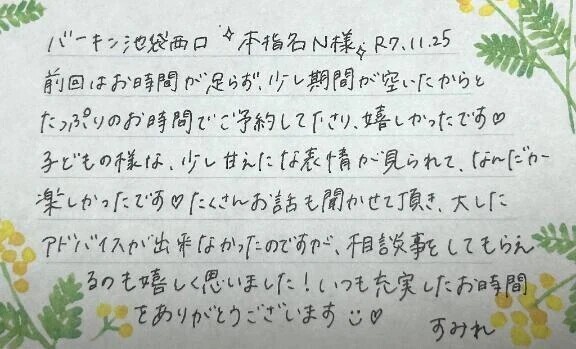 バーキン池袋西口 ✧本指名N様✧ R7.11.25
前回はお時間が足らず、少し期間が空いたからと
たっぷりのお時間でご予約して下さり、嬉しかったです♡
子どもの様な、少し甘えたな表情が見られて、なんだか
楽しかったです♡たくさんお話も聞かせて頂き、大した
アドバイスが出来なかったのですが、相談事をしてもらえ
るのも嬉しく思いました!いつも充実したお時間
をありがとうございます☺♡
すみれ